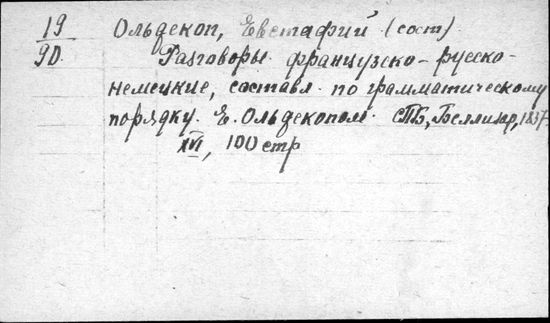 19
90.
Ольдекоп, Евстафий (сост).
Разговоры французско-русско-
немецкие, составл. по грамматическому
порядку. Е. Ольдекопом. СПБ, Беллизар, 1837
XVI, 100 стр